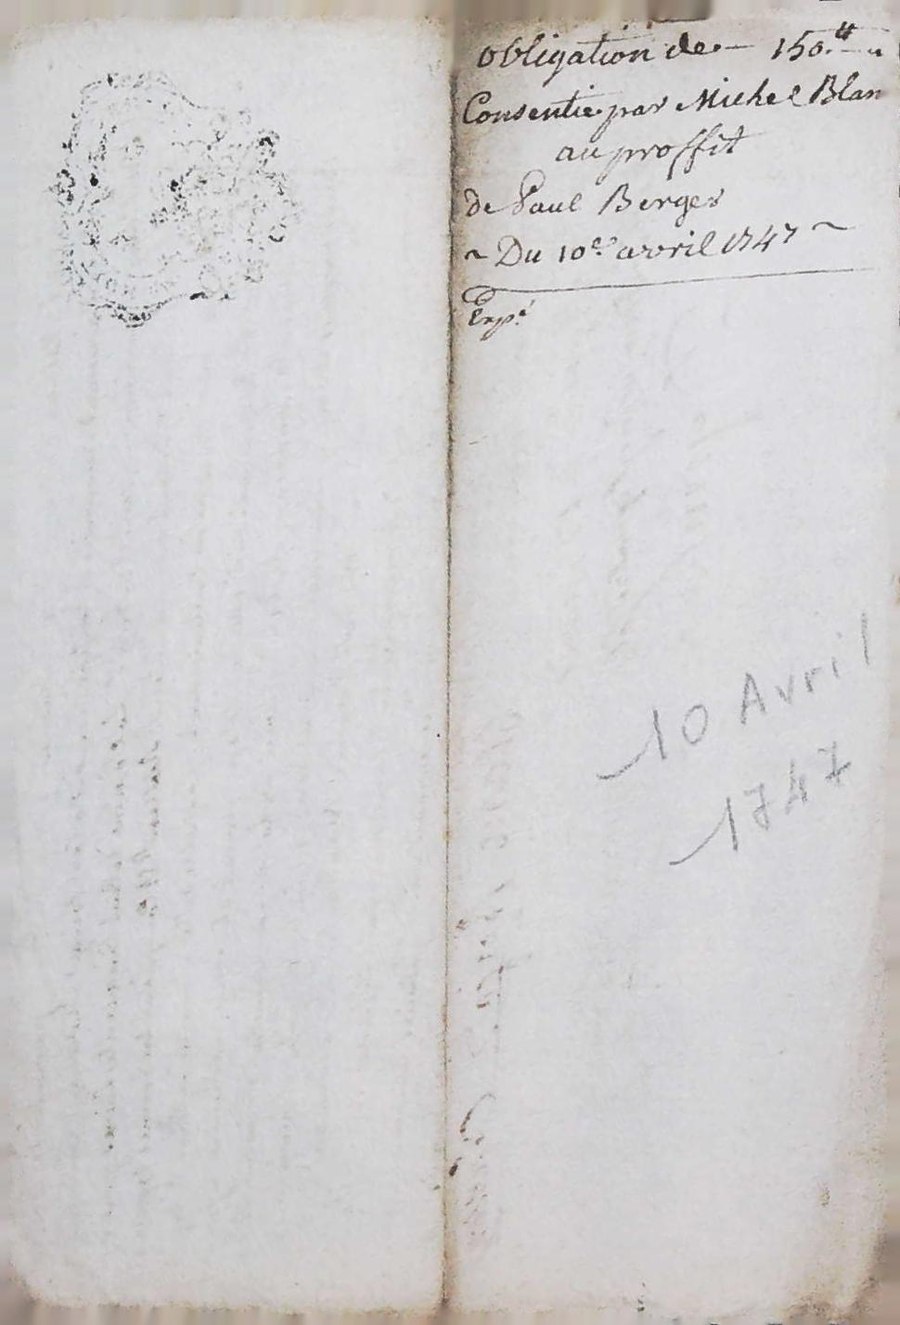 Obligation de — 150.tt
Consentie par Michel Blan
au proffit
de Paul Berges
~ Du 10e. avril 1747 ~
Expé
10 Avril
1747